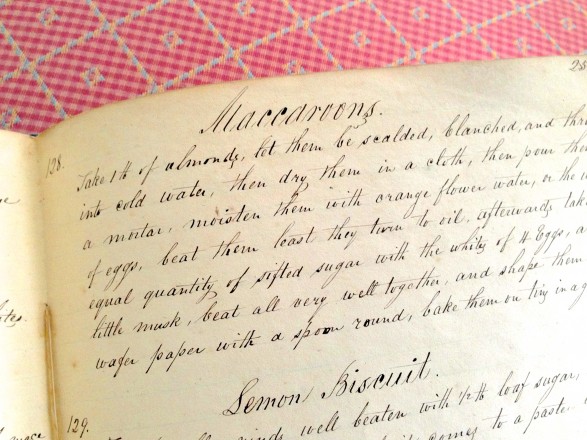 Maccaroons.
138. Take 1 lb of almonds, let them be scalded, blanched, and
into cold water, then dry them in a cloth, then
a mortar, moisten them with orange flower water, or the
of eggs, beat them least they turn to oil, afterwards
equal quantity of sifted sugar with the whites of 4 Eggs,
little musk, beat all very well together, and shape them
wafer paper with a spoon round, bake them on tin in
Lemon Biscuit.
129.
well beaten with 1/2 lb loaf sugar,
comes to a paste